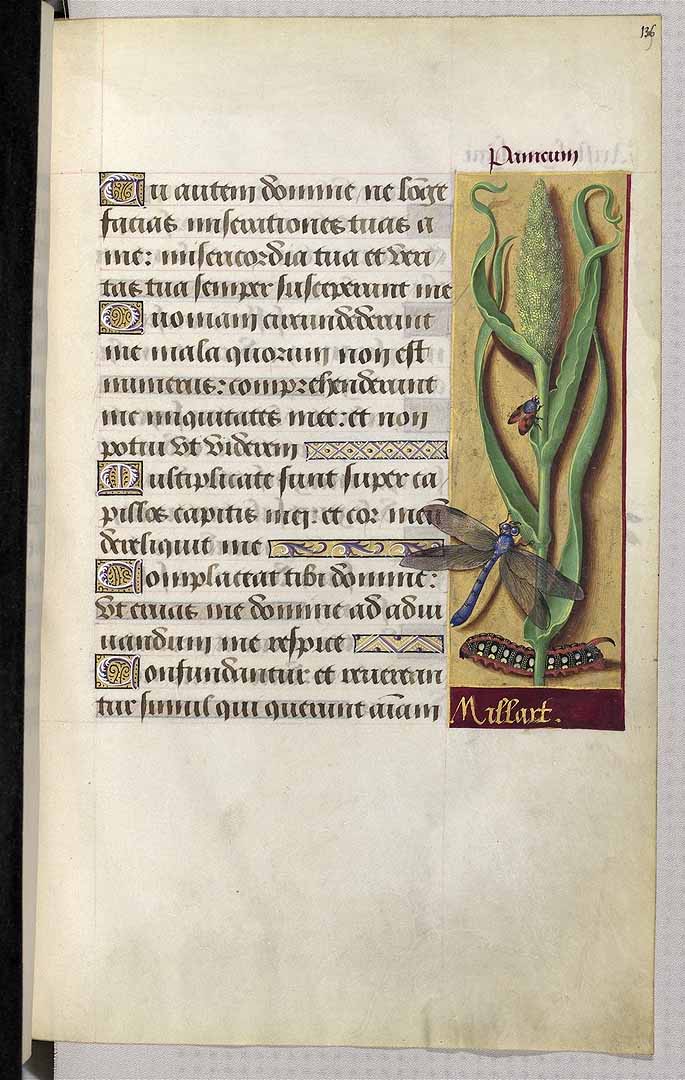 136
Panicum
Tu autem domine ne lo͂ge
facias miserationes tuas a
me: misericordia tua et veri
tas tua semper susceperunt me
Quoniam circundederunt
me mala quorum non est
numerus: comprehenderunt
me iniquitates mee: et non
potui vt viderem
Multiplicate sunt super ca
pillos capitis mei: et cor meū
dereliquit me
Complaceat tibi domine:
vt eruas me domine ad adiu
uandum me respice
Confundantur et reuerean
tur simul qui querunt aīam
Millart.